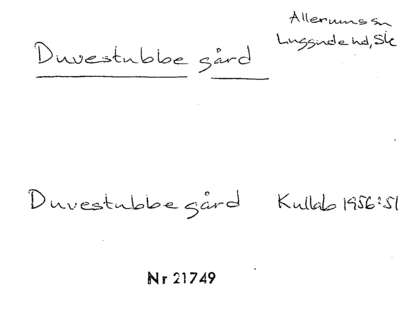 Allerums sn
Luggude hd, Sk
Duvestubbe gård
Duvestubbe gård Kullab 1956:51
Nr 21749